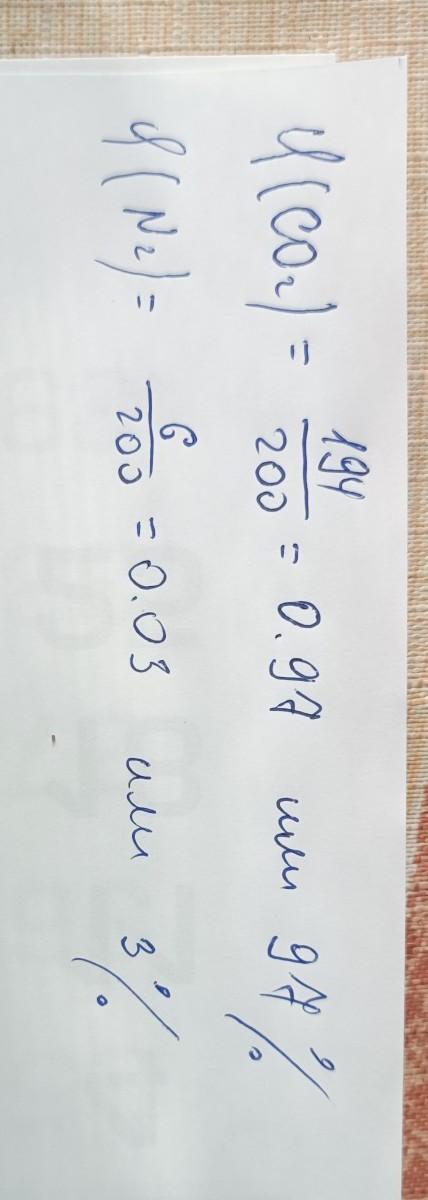 φ(CO₂) = 194/200 = 0.97 или 97%
φ(N₂) = 6/200 = 0.03 или 3%